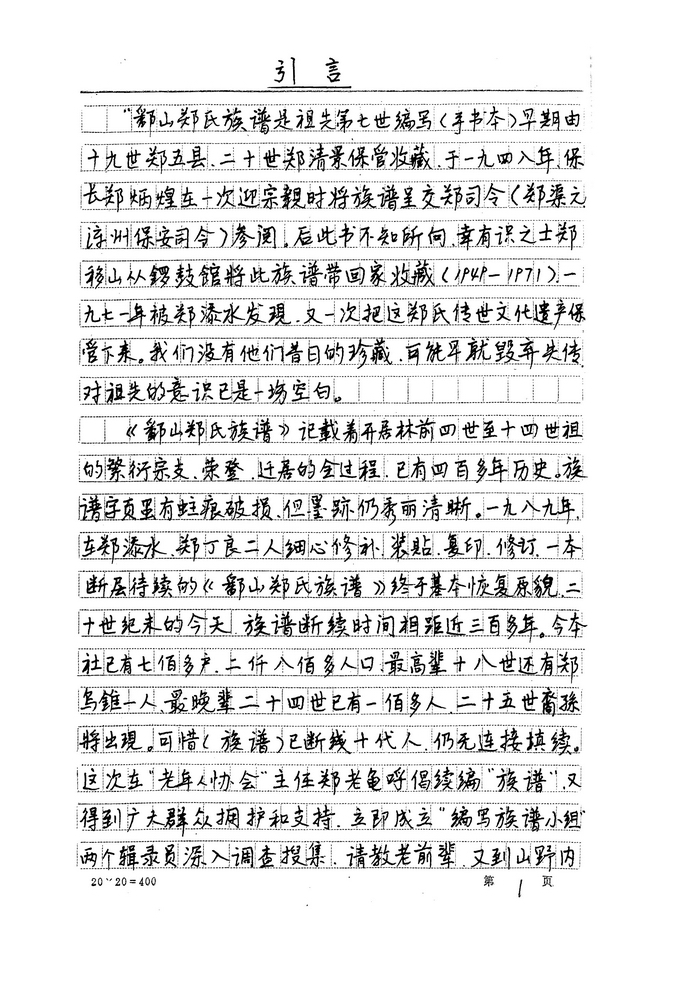 引言
“鄱山郑氏族谱是祖先第七世编写(手书本)早期由
十九世郑五县、二十世郑清景保管收藏、于一九四八年、保
长郑炳煌在一次迎宗亲时将族谱呈交郑司令(郑渠元
漳州保安司令)参阅。后此书不知所向、幸有识之士郑
移山从鑼鼓館将此族谱带回家收藏(1949-1971)、一
九七一年被郑添水发現、又一次把这郑氏传世文化遗产保
管下来。我们没有他们昔日的珍藏、可能早就毁弃失传、
对祖先的意识已是一场空白。
《鄱山郑氏族谱》记载着开居林前四世至十四世祖
的繁衍宗支、荣登、迁居的全过程、已有四百多年历史。族
谱字页虽有蛀痕破损、但墨跡仍秀丽清晰。一九八九年、
在郑添水、郑丁良二人细心修补、装贴、复印、修订、一本
断层待续的《鄱山郑氏族谱》终于基本恢复原貌、二
十世纪末的今天、族谱断续时间相距近三百多年。今本
社已有七佰多户、二仟八佰多人口、最高辈十八世还有郑
乌錐一人、最晚辈二十四世已有一佰多人、二十五世裔孫
将出現。可惜(族谱)已断线十代人、仍无连接填续。
这次在“老年人协会”主任郑老龟呼倡续编“族谱”、又
得到广大群众拥护和支持、立即成立“编写族谱小组”
两个辑录员深入调查搜集、请教老前辈、又到山野内
20×20=400 第 1 页